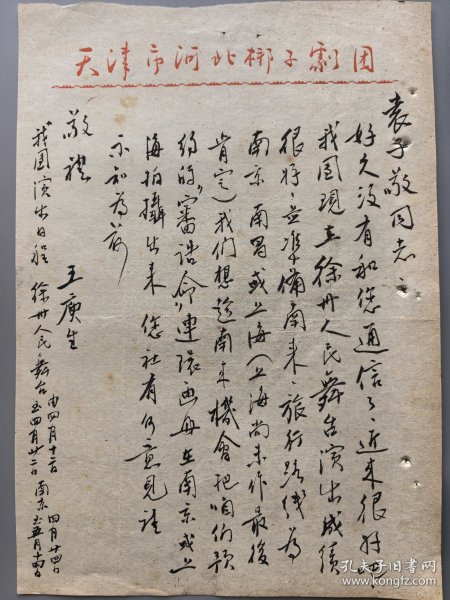 天津市河北梆子剧团
袁子敬同志：
好久没有和您通信了，近来很好吧
我团现在徐州人民舞台演出成绩
很好，并准备南来，旅行路线为
南京南昌或上海（上海尚未作最后
肯定）我们想趁南来机会把咱们预
约的“审诰命”连环画册在南京或上
海拍摄出来您社有何意见请
示知为荷
敬礼
王庚生
我团演出日程 徐州人民舞台 由四月十二日至四月廿二日 南京 四月廿四日至五月十四日
孔夫子旧书网